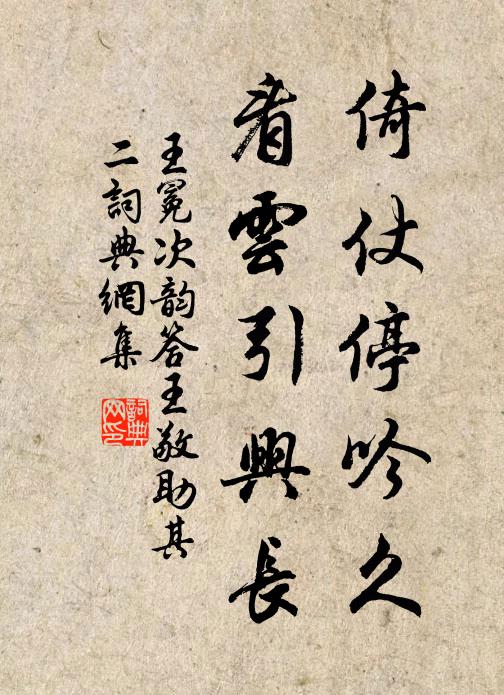 倚仗停吟久
看雲引興長
王冕次韵答王敬助其
二詞典網集
詞典网印